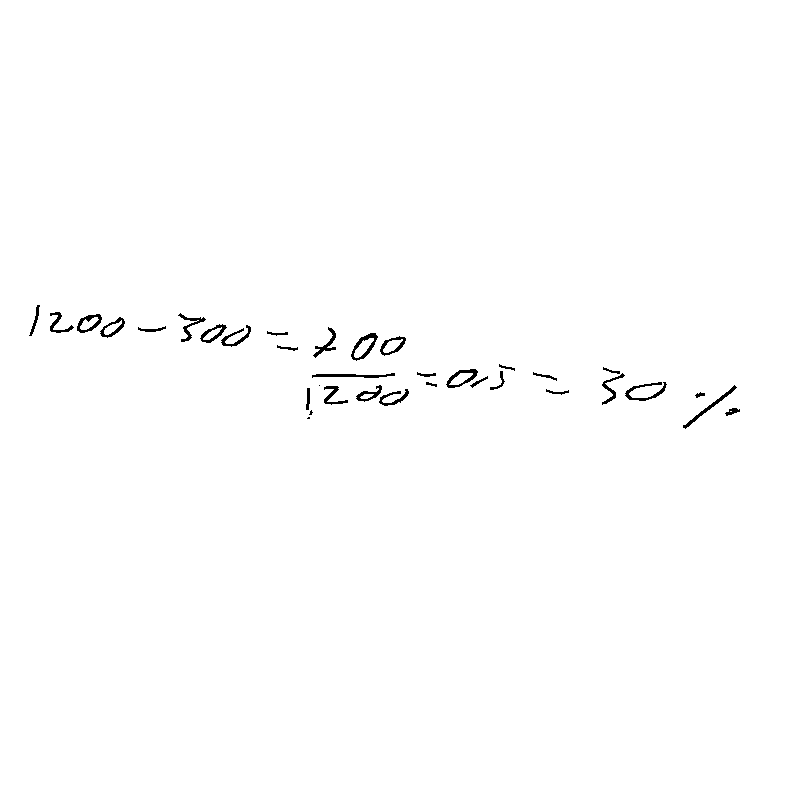 1200 - 300 = 700
1200 = 0,5 = 30 %